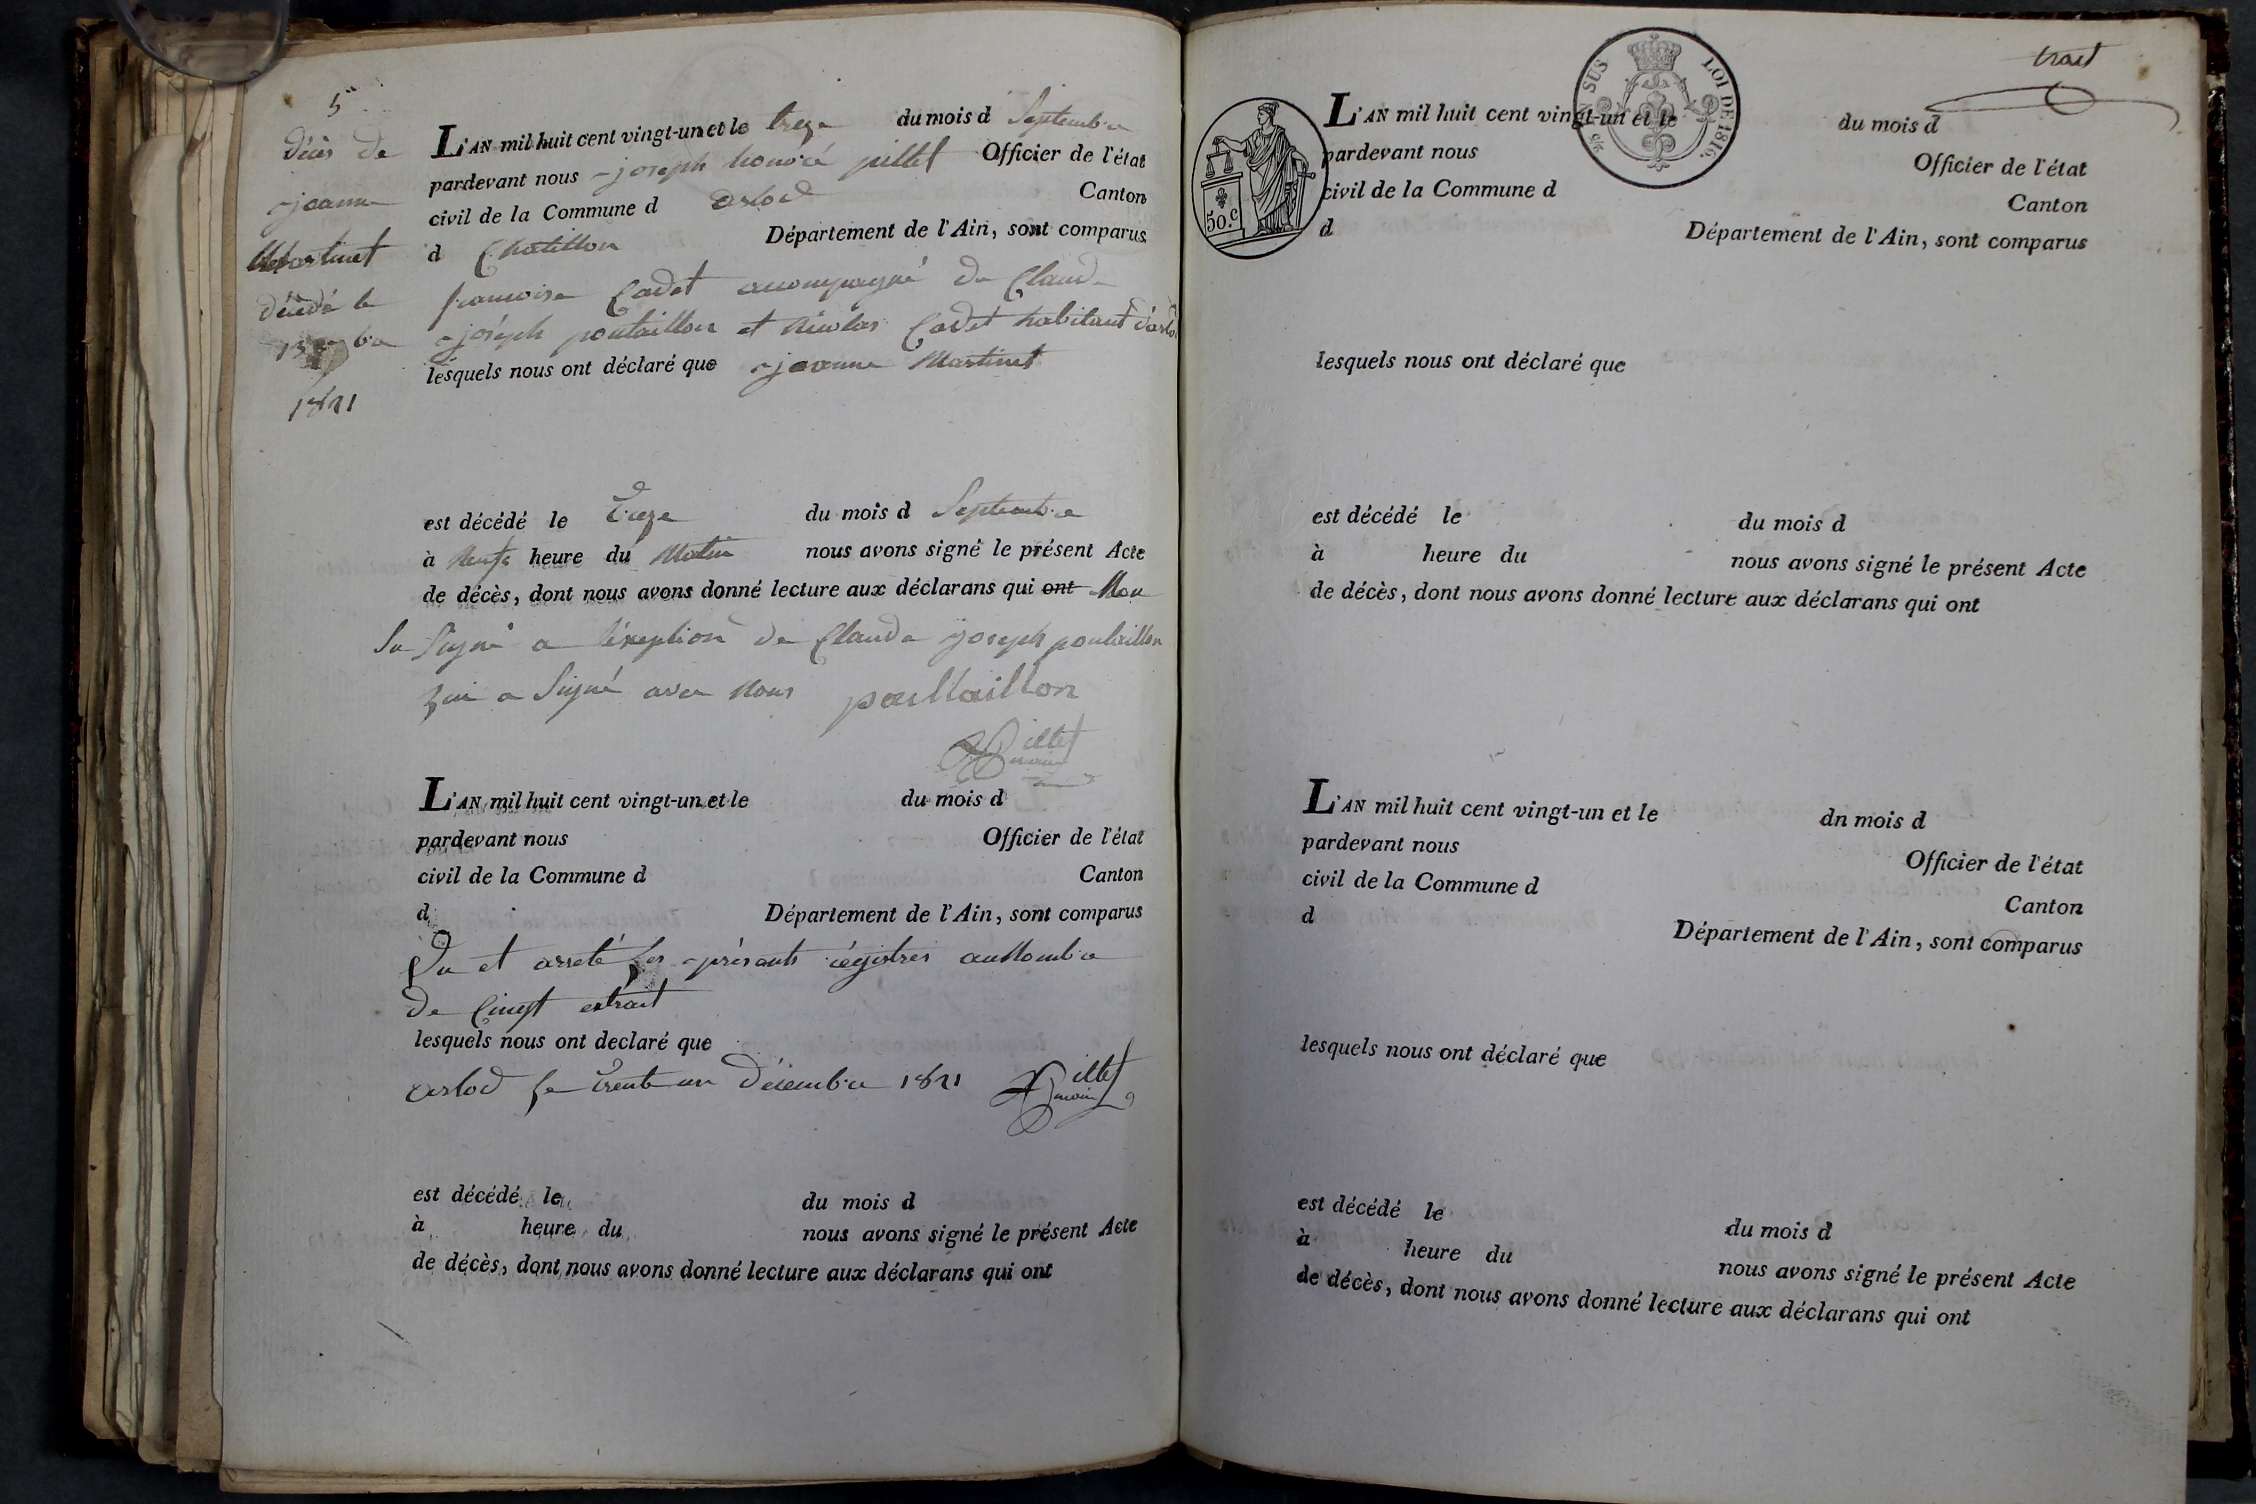 5e
décès de
jeanne
Martinet
décédé le
13 7bre
1821
L'AN mil huit cent vingt-un et le treze du mois d Septembre
pardevant nous joseph honoré pillet Officier de l'état
civil de la Commune d arlod Canton
d Chatillon Département de l'Ain, sont comparus
francoise Cadet accompagné de Claude
joseph poutaillon et Nicolas Cadet habitant d'arlod
lesquels nous ont déclaré que jeanne Martinet
est décédé le treze du mois d Septembre
à Neufe heure du Matin nous avons signé le présent Acte
de décès, dont nous avons donné lecture aux déclarans qui ont Non
Su Signé a léxeption de Claude joseph poutaillon
qui a Signé avec Nous poultaillon
Pillet
maire
L'AN mil huit cent vingt-un et le du mois d
pardevant nous Officier de l'état
civil de la Commune d Canton
d Département de l'Ain, sont comparus
Vu et arreté les présents régistres au Nombre
de Cinq extrait
lesquels nous ont declaré que
arlod le trente un Décembre 1821 Pillet
maire
est décédé le du mois d
à heure du nous avons signé le présent Acte
de décès, dont nous avons donné lecture aux déclarans qui ont
trait
EN SUS LOI DE 1816.
50.c
L'AN mil huit cent vingt-un et le du mois d
pardevant nous Officier de l'état
civil de la Commune d Canton
d Département de l'Ain, sont comparus
lesquels nous ont déclaré que
est décédé le du mois d
à heure du nous avons signé le présent Acte
de décès, dont nous avons donné lecture aux déclarans qui ont
L'AN mil huit cent vingt-un et le dn mois d
pardevant nous Officier de l'état
civil de la Commune d Canton
d Département de l'Ain, sont comparus
lesquels nous ont déclaré que
est décédé le du mois d
à heure du nous avons signé le présent Acte
de décès, dont nous avons donné lecture aux déclarans qui ont